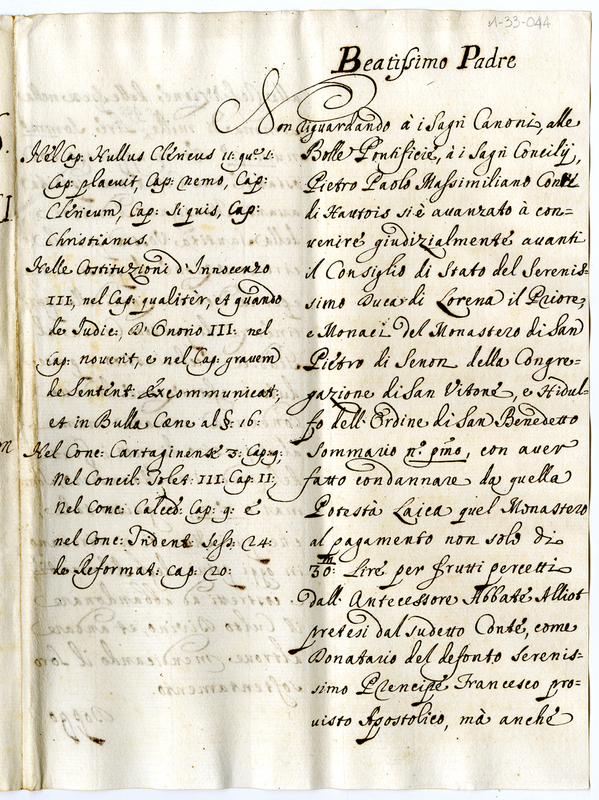 1-33-044
Beatissimo Padre
Non riguardando à i Sagri Canoni, alle
Bolle Pontificie, à i Sagri Concilij,
Pietro Paolo Massimiliano Conte
di Hautois si è auanzato à con=
uenire giudizialmente auanti
il Consiglio di Stato del Serenis=
simo Duca di Lorena il Priore,
e Monaci del Monastero di San
Pietro di Senon della Congre=
gazione di San Vitone, e Hidul=
fo dell' Ordine di San Benedetto
Sommario n.º pmo, con auer
fatto condannare da quella
Potestà Laica quel Monastero
al pagamento non solo di
30: Lire per frutti percetti
dall' Antecessore Abbate Alliot
pretesi dal sudetto Conte, come
Donatario del defonto Serenis=
simo Prencipe Francesco pro=
uisto Apostolico, mà anche
Nel Cap: Nullus Clericus 11: qu.e 1:
Cap: placuit, Cap: nemo, Cap:
Clericum, Cap: Si quis, Cap:
Christianus.
Nelle Costituzioni d'Innocenzo
III, nel Cap: qualiter, et quando
de Iudic:, D'Onorio III: nel
Cap: nouerit, e nel Cap: grauem
de Sentent: Excommunicat:,
et in Bulla Cæne al §: 16:
Nel Conc: Cartaginense 3: Cap: 9:
Nel Concil: Tolet: III: Cap: 11:
Nel Conc: Calced: Cap: 9: e
nel Conc: Trident: Sess: 24:
de Reformat: Cap: 20: